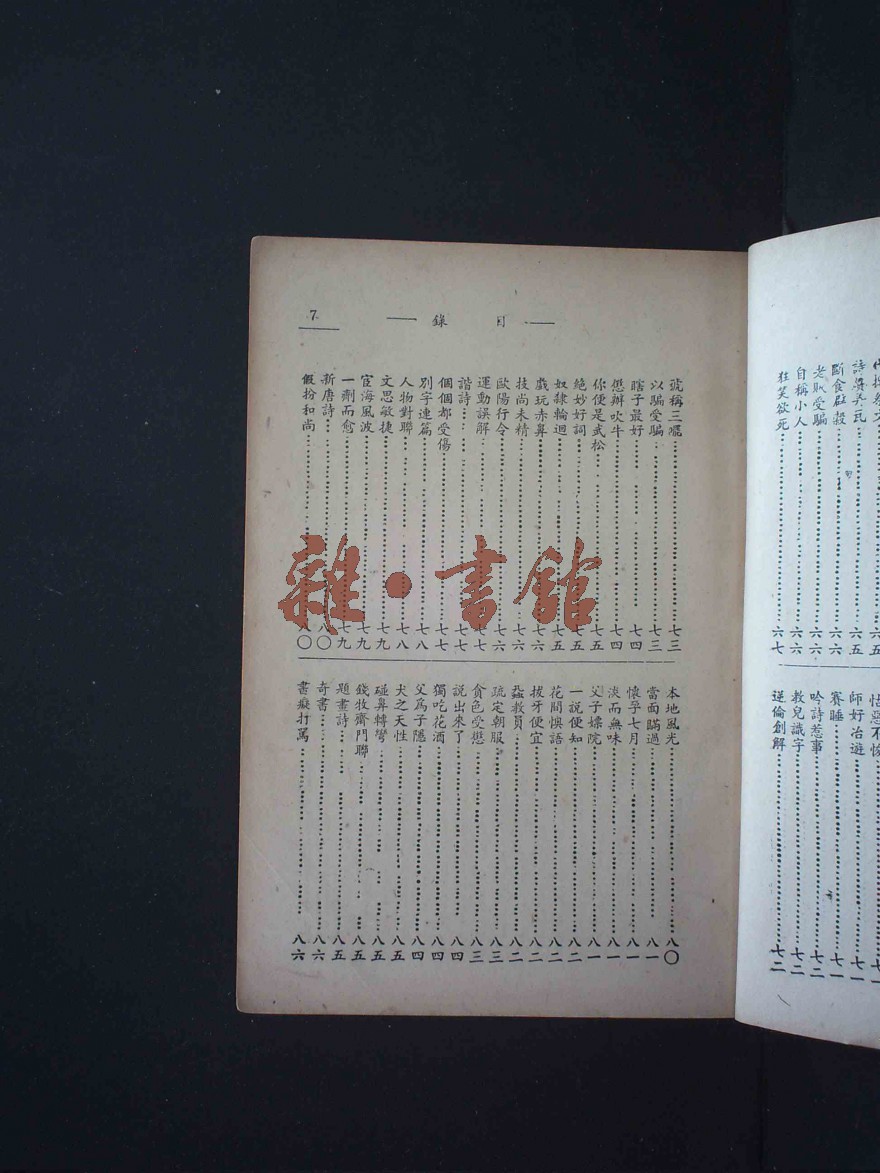 斷食辟穀……六六
老耿受騙……六六
自稱小人……六六
狂笑欲死……六七
怙惡不悛……七一
師好冶遊……七一
賽睡……七一
吟詩惹事……七二
教兒識字……七二
逆倫創解……七二
目錄
7
號稱三……七三
以騙受騙……七三
瞎子最好……七四
懲辦吹牛……七四
你便是武松……七五
絕妙好詞……七五
奴隸輪迴……七五
戲玩赤鼻……七六
技尚未精……七六
歐陽行令……七六
運動誤解……七七
諧詩……七七
個個都受傷……七七
別字連篇……七八
人物對聯……七八
文思敏捷……七九
宦海風波……七九
一劑而愈……七九
新唐詩……八〇
假扮和尚……八〇
本地風光……八〇
當面瞞過……八一
懷孕七月……八一
淡而無味……八一
父子嫖院……八一
一說便知……八二
花間悞語……八二
拔牙便宜……八二
蝨教員……八二
疏定朝服……八三
貪色受懲……八三
說出來了……八四
獨吃花酒……八四
父為子隱……八四
犬之天性……八五
碰鼻轉彎……八五
錢牧齊門聯……八五
題畫詩……八五
奇書……八六
書癡打罵……八六
雜·書館